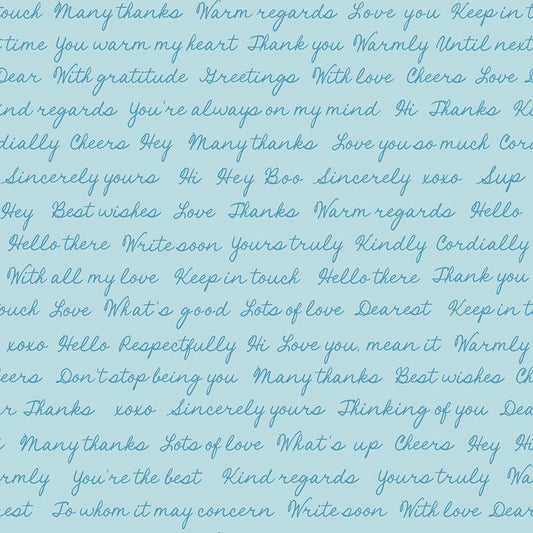 touch Many thanks Warm regards Love you Keep in t
time You warm my heart Thank you Warmly Until next
Dear With gratitude Greetings With love Cheers Love
ind regards You're always on my mind Hi Thanks Ki
dially Cheers Hey Many thanks Love you so much Cor
Sincerely yours Hi Hey Boo Sincerely xoxo Sup
Hey Best wishes Love Thanks Warm regards Hello
Hello there Write soon Yours truly Kindly Cordially
With all my love Keep in touch Hello there Thank you
ouch Love What's good Lots of love Dearest Keep in t
xoxo Hello Respectfully Hi Love you, mean it Warmly
eers Don't stop being you Many thanks Best wishes Ch
r Thanks xoxo Sincerely yours Thinking of you Dea
Many thanks Lots of love What's up Cheers Hey Hi
rmly You're the best Kind regards Yours truly Wa
rest To whom it may concern Write soon With love Dear